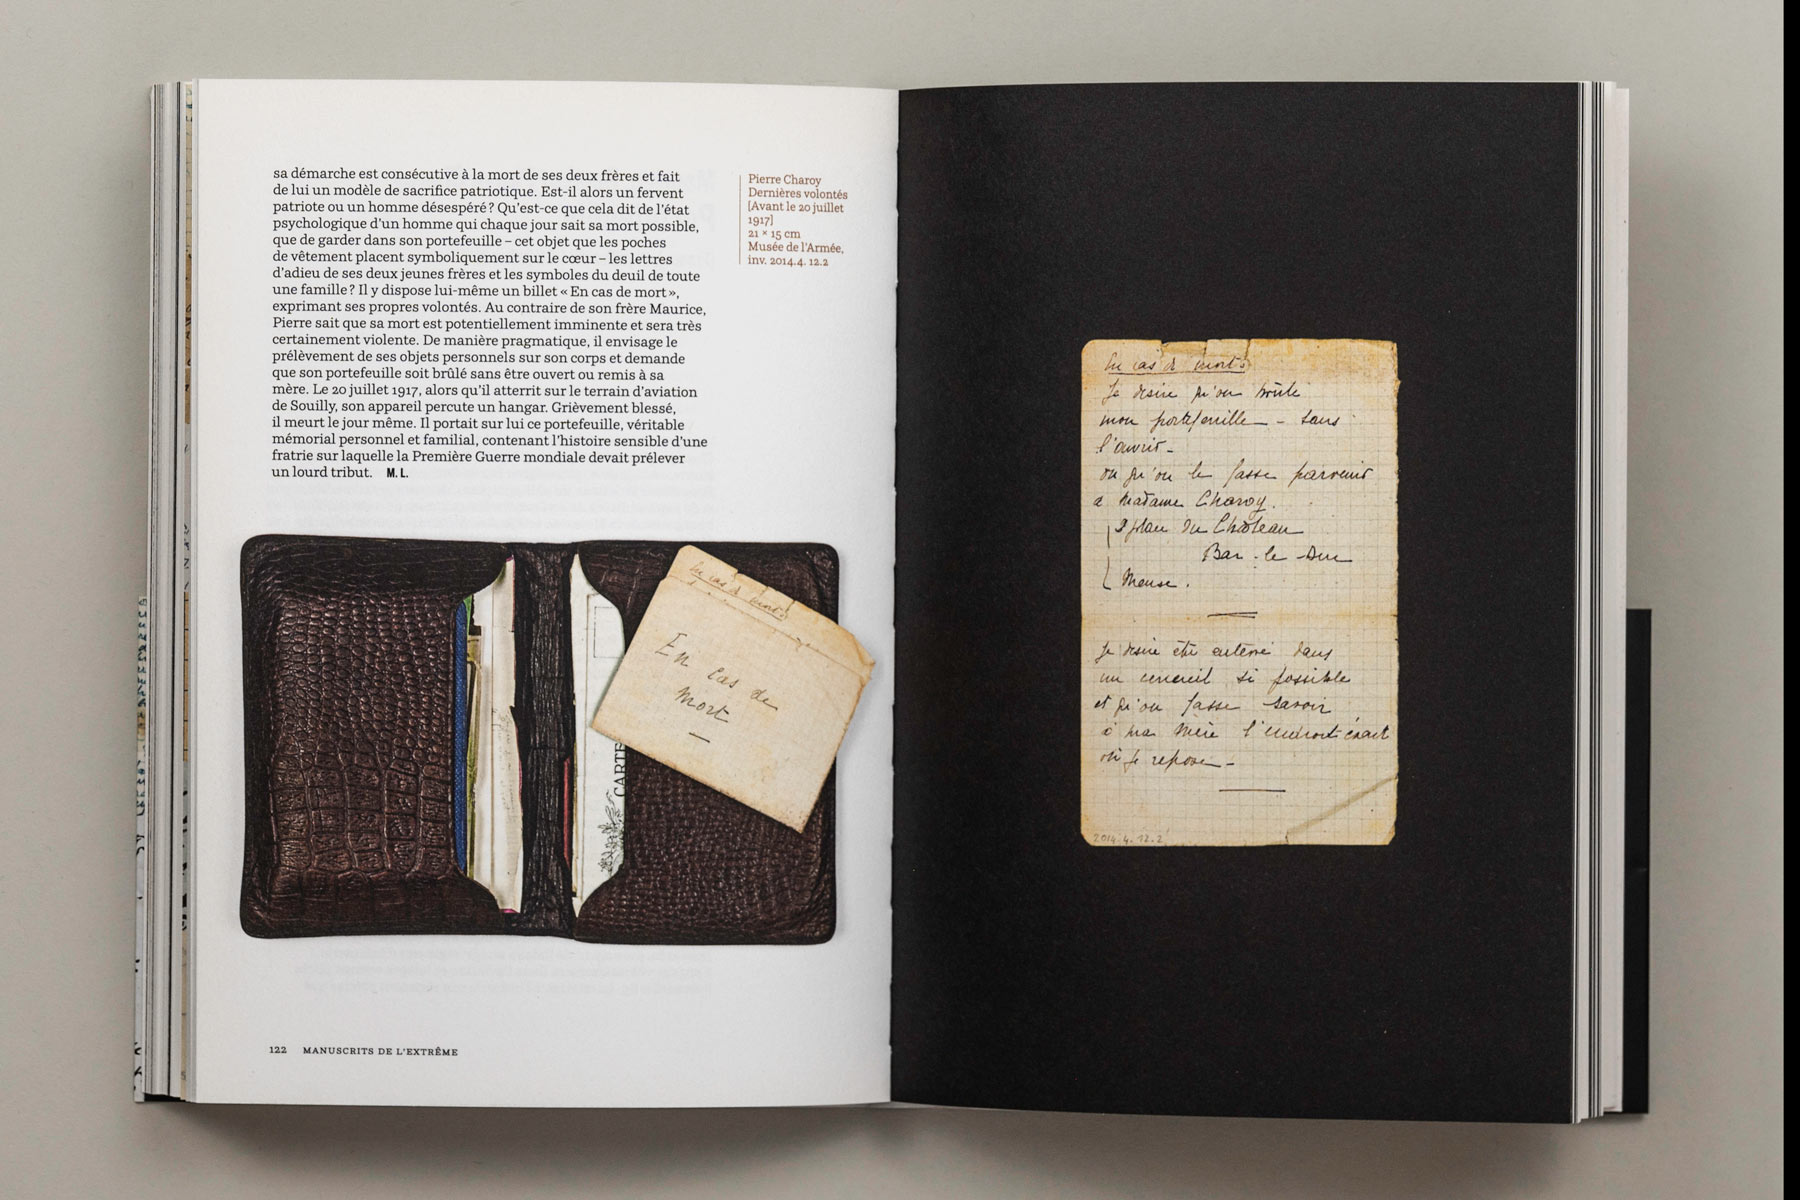 sa démarche est consécutive à la mort de ses deux frères et fait
de lui un modèle de sacrifice patriotique. Est-il alors un fervent
patriote ou un homme désespéré ? Qu'est-ce que cela dit de l'état
psychologique d'un homme qui chaque jour sait sa mort possible,
que de garder dans son portefeuille – cet objet que les poches
de vêtement placent symboliquement sur le cœur – les lettres
d'adieu de ses deux jeunes frères et les symboles du deuil de toute
une famille ? Il y dispose lui-même un billet « En cas de mort »,
exprimant ses propres volontés. Au contraire de son frère Maurice,
Pierre sait que sa mort est potentiellement imminente et sera très
certainement violente. De manière pragmatique, il envisage le
prélèvement de ses objets personnels sur son corps et demande
que son portefeuille soit brûlé sans être ouvert ou remis à sa
mère. Le 20 juillet 1917, alors qu'il atterrit sur le terrain d'aviation
de Souilly, son appareil percute un hangar. Grièvement blessé,
il meurt le jour même. Il portait sur lui ce portefeuille, véritable
mémorial personnel et familial, contenant l'histoire sensible d'une
fratrie sur laquelle la Première Guerre mondiale devait prélever
un lourd tribut. M. L.
Pierre Charoy
Dernières volontés
[Avant le 20 juillet
1917]
21 × 15 cm
Musée de l'Armée,
inv. 2014.4. 12.2
En cas de mort
En cas de
Mort
CARTE
122 MANUSCRITS DE L'EXTRÊME
En cas de mort
Je desire qu'on brûle
mon portefeuille - sans
l'ouvrir -
ou qu'on le fasse parvenir
à Madame Charoy
place du Château
Bar-le-Duc
Meuse.
Je desire être enterré dans
un cercueil si possible
et qu'on fasse savoir
à ma Mère l'endroit exact
où je repose -
2014.4.12.2